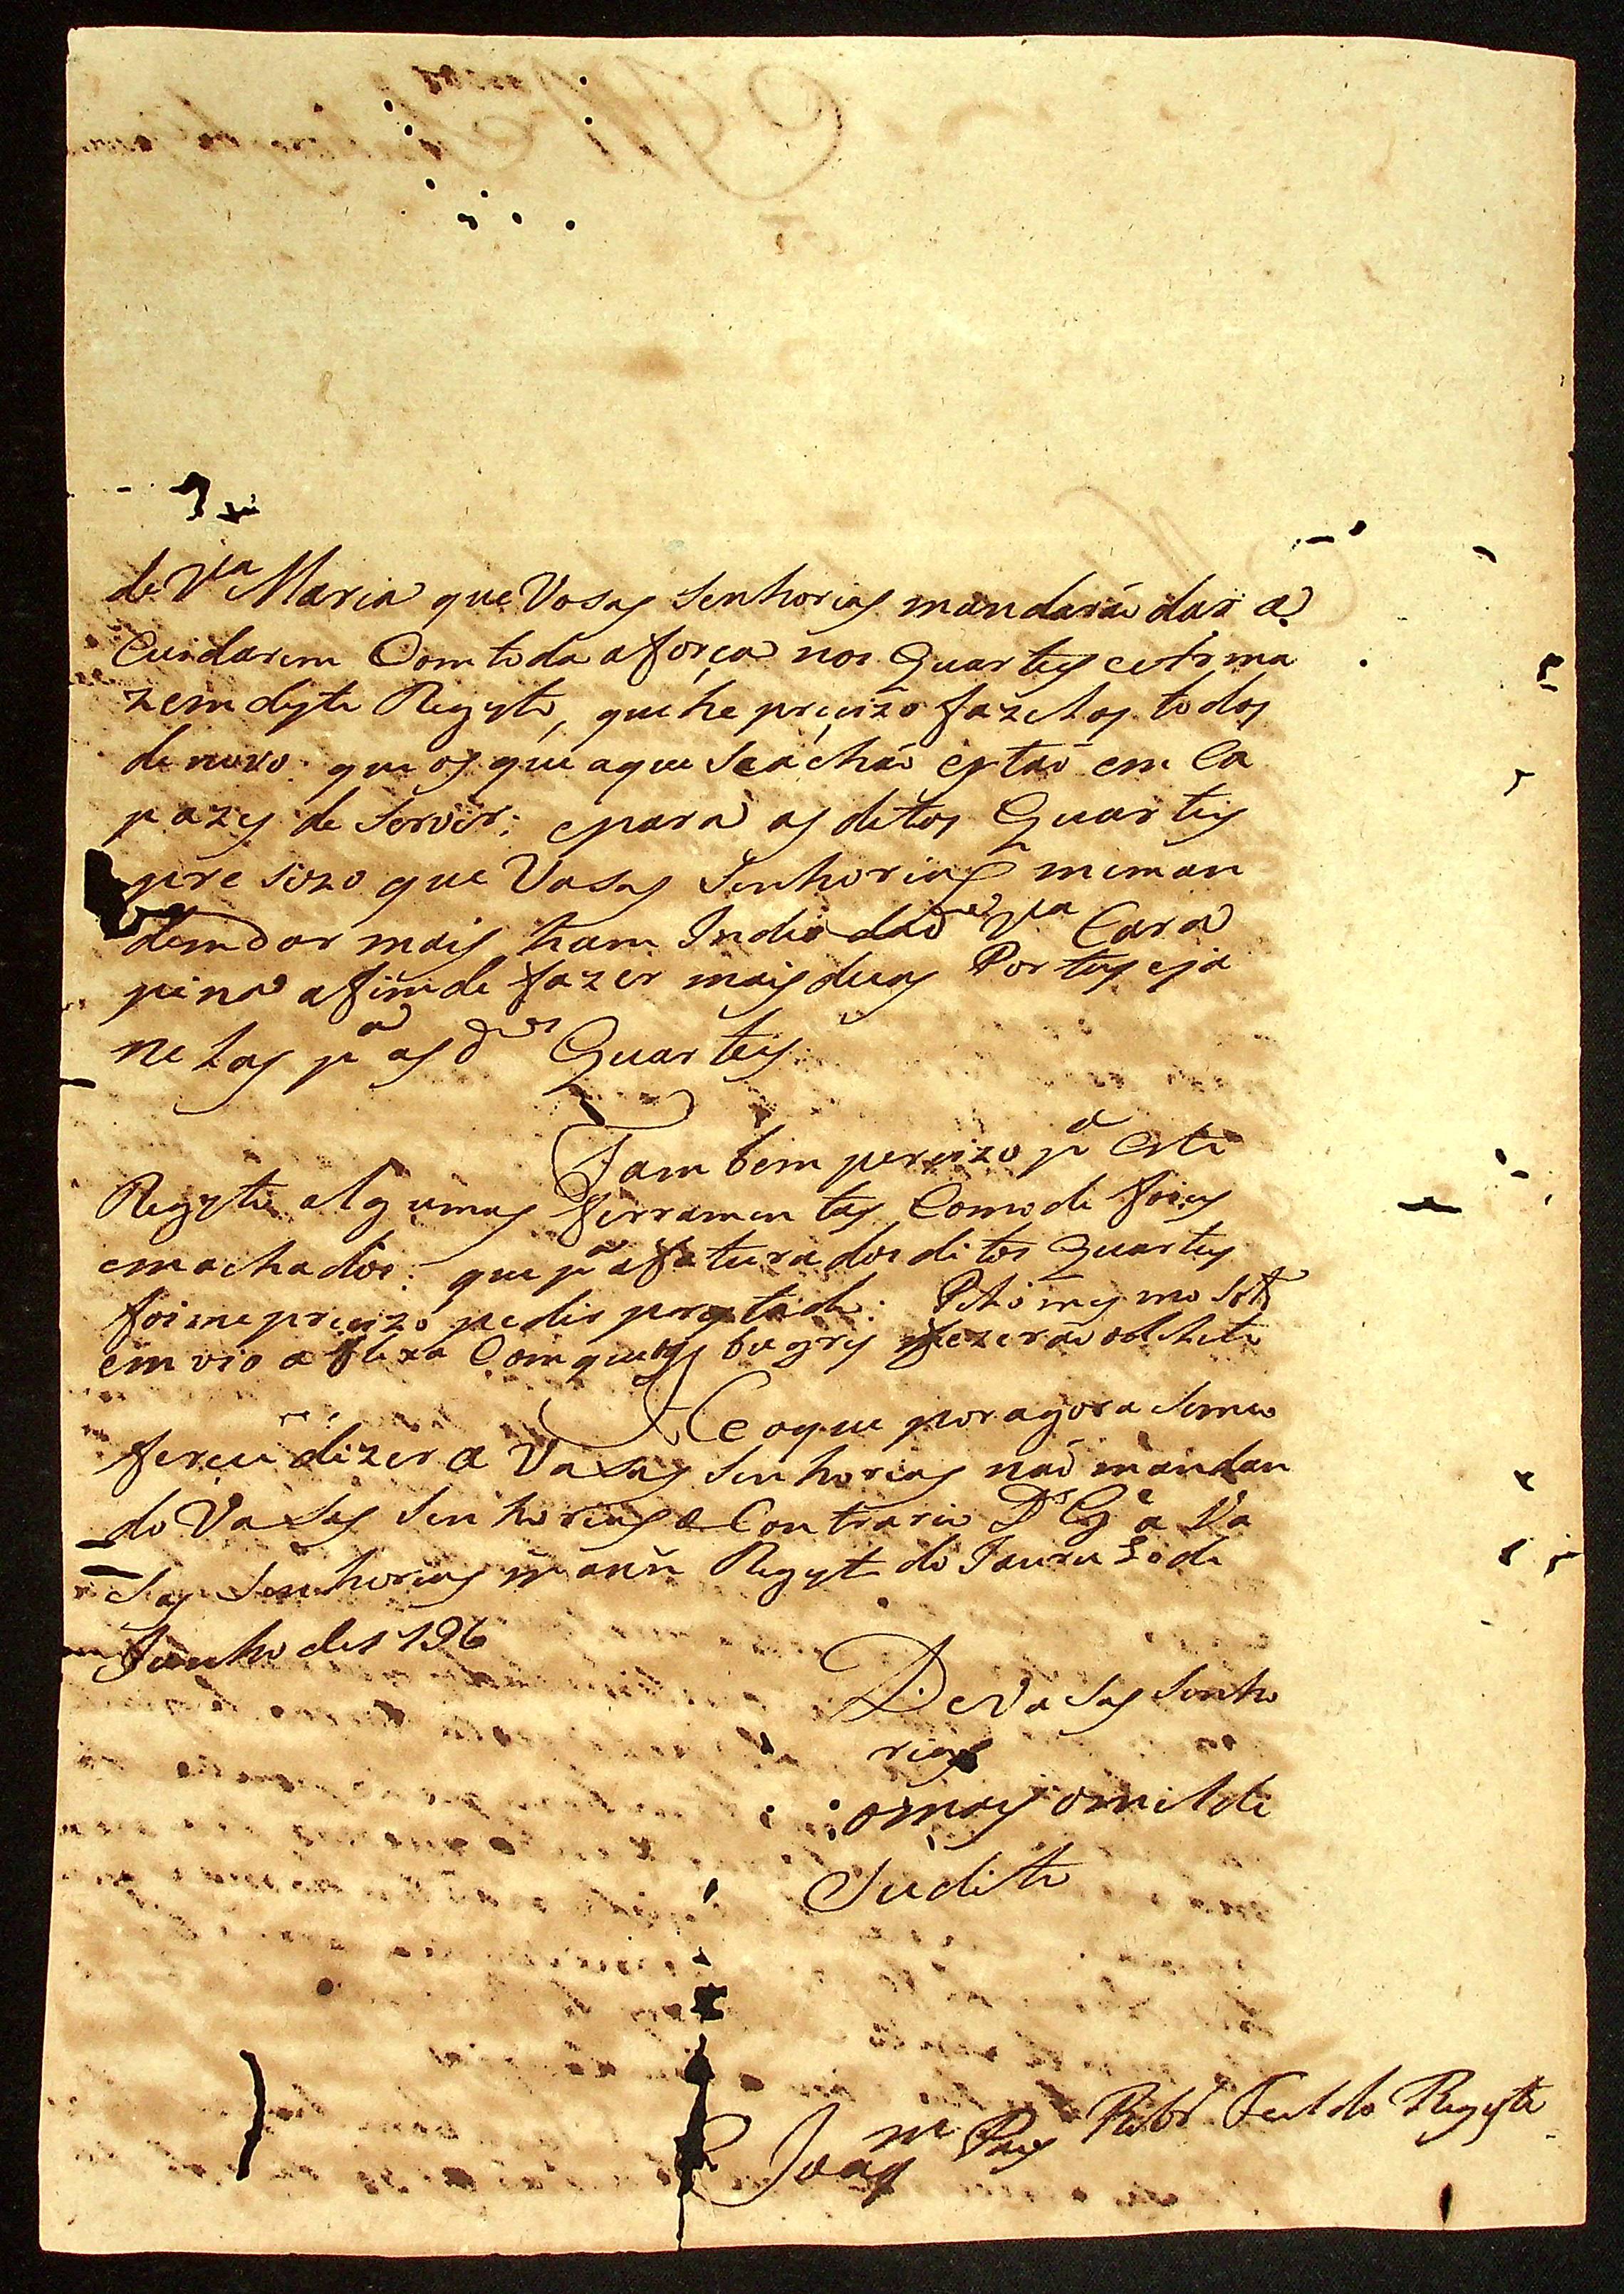 de V.la Maria que Vosas Senhorias mandaráo dar a
Cuidarem Com toda a força nos Quarteis e Arma
zem deste Registo, que he precizo fazelos todos
de novo que os que aque Seácháo estáo em Ca
pazes de Servir; epara os ditos Quarteis
presizo que Vasas Senhorias meman
dem dar mais hum Indio dad.a V.la Cara
pina afim de fazer mais duas Portas eja
nelas p.a os d.os Quarteis.
Tam bem percizo p.a este
Registo algumas ferramentas Como de foises
emachados: que p.a afatura dos ditos Quarteis
foime precizo pedir prestado: Pelo mesmo Sold.o
em vio a flexa Comque os bugres fezeráo
He oque por agora Seme
ferece dizer a Vasas Senhorias náo mandan
do Vasas Senhorias o Contrario D.s G.e a Va
Sas Senhorias m.s ann.s Regist.o do Jauru 2 de
Junho de 1796
De Va Sas Senho
rias
o mais omilde
Sudito
Joaq.m Pais Rib.r Fiel do Registo